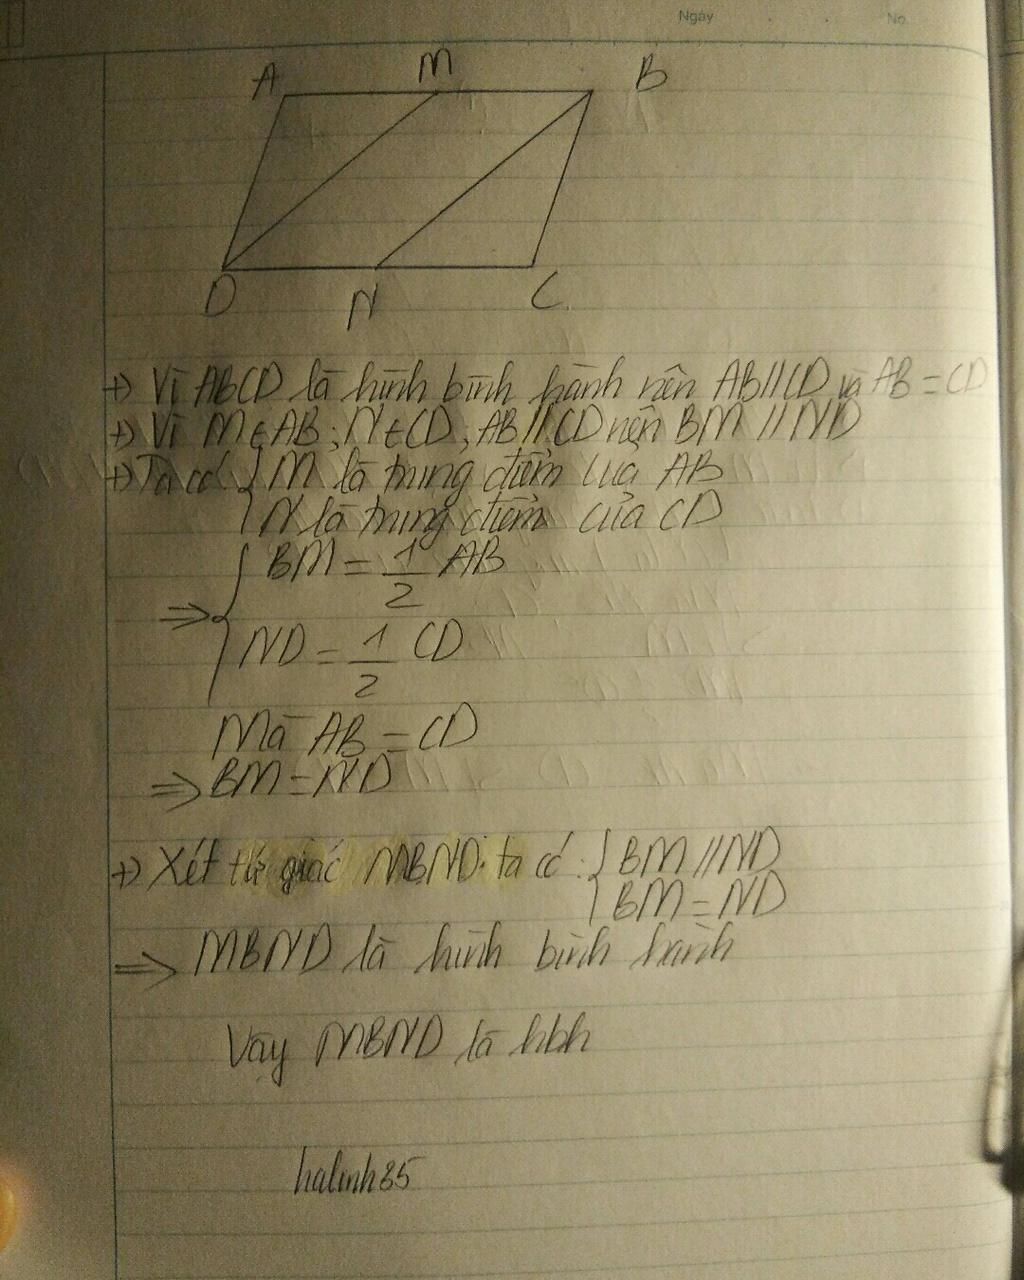 Ngày
No.
A M B
D N C
+) Vì ABCD là hình bình hành nên AB // CD và AB = CD
+) Vì M ∈ AB ; N ∈ CD ; AB // CD nên BM // ND
+) Ta có { M là trung điểm của AB
N là trung điểm của CD
=> { BM = 1/2 AB
ND = 1/2 CD
Mà AB = CD
=> BM = ND
+) Xét tứ giác MBND: ta có: { BM // ND
BM = ND
=> MBND là hình bình hành
Vậy MBND là hbh
halinh85